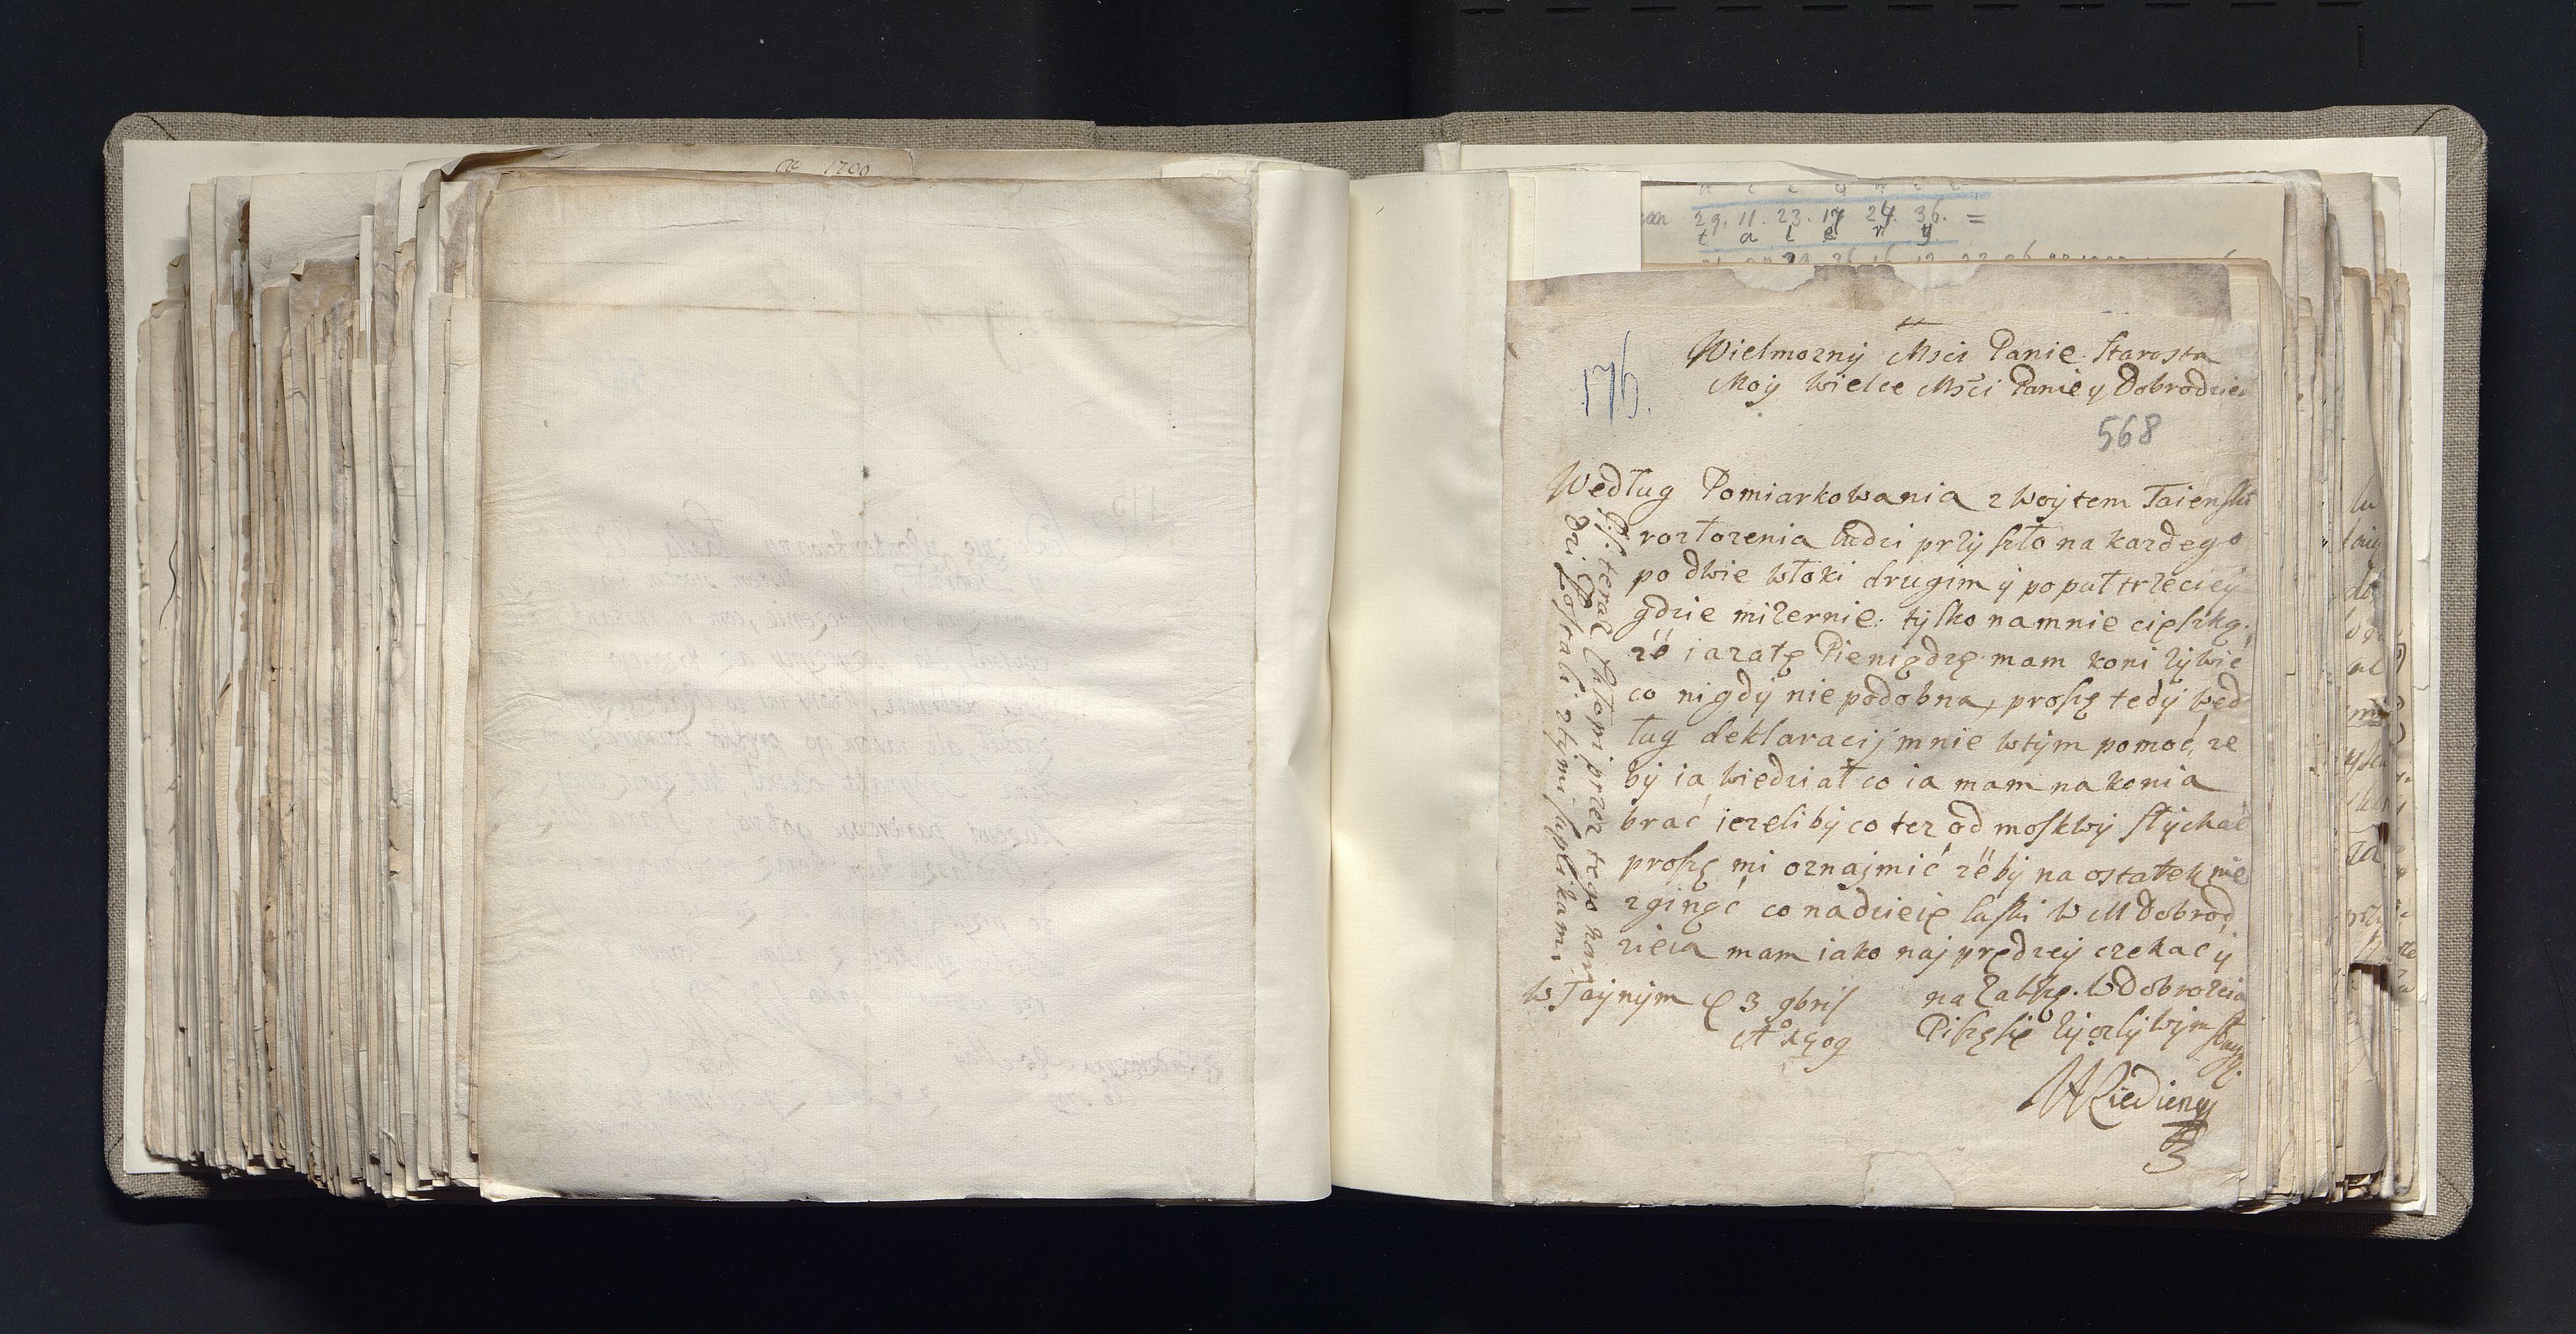 1700
29. 11. 23. 17 24. 36. =
t a l e r y
176.
Wielmozny Msci Panie Starosta
Moÿ Wielce Msci Panie y Dobrodzie
568
Według Pomiarkowania z Woÿtem Taiensk
rozłozenia ludzi przÿszło na kazdego
po dwie włoki drugim ÿ po puł trzecieÿ
gdzie mizernie. tÿlko na mnie cięszkę.
zë ia zatę Pieniędzę mam koni zÿwic
co nigdÿ nie podobna, proszę tedÿ wed
ług deklaracij mnie wtÿm pomoć, ze
bÿ ia wiedział co ia mam na konia
brać iezelibÿ co tez od moskwÿ słÿchać
proszę mi oznajmić zëbÿ na ostatek nie
zginąć co nadzieię łaski W M Dobrod
zieia mam iako naj prędzeÿ czekać ÿ
w Taÿnÿm 3 gbris
na Zawsze. W Dobrozieia
Aº 1709
Piszęsię zÿczlÿwÿm sługą.
P.S. teraz Chłopi przez tego
dzi Zostali ztÿmi suplikami